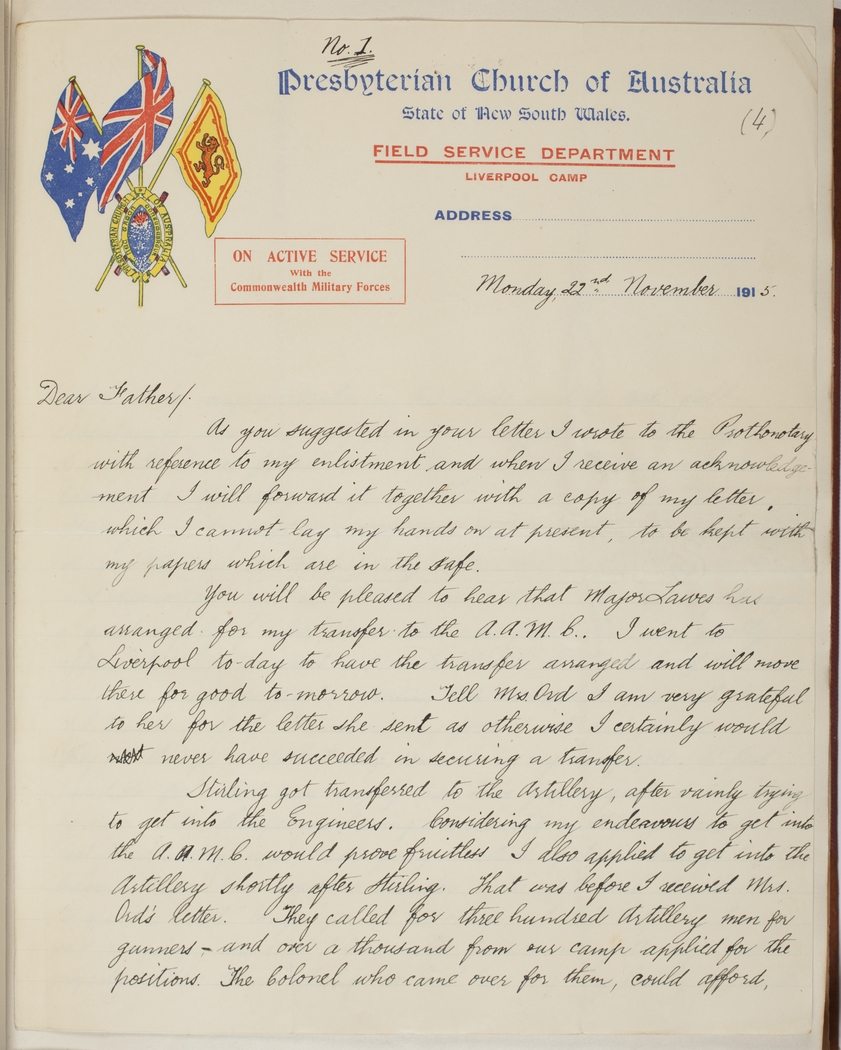 No. 1.
Presbyterian Church of Australia
State of New South Wales.
(4)
FIELD SERVICE DEPARTMENT
LIVERPOOL CAMP
ADDRESS
ON ACTIVE SERVICE
With the
Commonwealth Military Forces
Monday, 22nd November 1915.
Dear Father/.
As you suggested in your letter I wrote to the Prothonotary
with reference to my enlistment and when I receive an acknowledge-
ment I will forward it together with a copy of my letter,
which I cannot lay my hands on at present, to be kept with
my papers which are in the safe.
You will be pleased to hear that Major Lawes has
arranged for my transfer to the A.A.M.C.. I went to
Liverpool to-day to have the transfer arranged and will move
there for good to-morrow. Tell Mrs. Ord I am very grateful
to her for the letter she sent as otherwise I certainly would
never have succeeded in securing a transfer.
Stirling got transferred to the Artillery, after vainly trying
to get into the Engineers. Considering my endeavours to get into
the A.A.M.C. would prove fruitless I also applied to get into the
Artillery shortly after Stirling. That was before I received Mrs.
Ord's letter. They called for three hundred Artillery men for
gunners - and over a thousand from our camp applied for the
positions. The Colonel who came over for them, could afford,